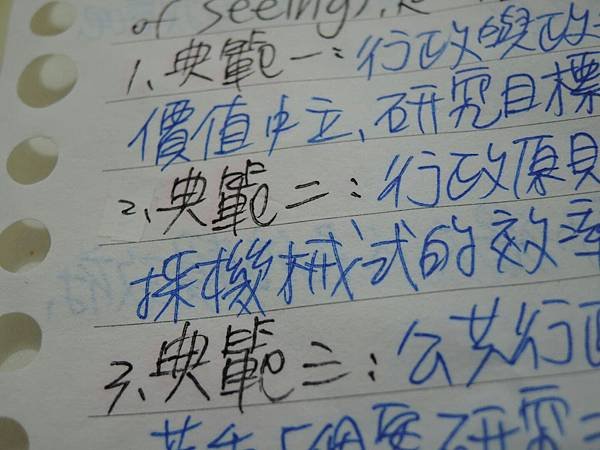 of seeing),
1、典範一：行政與政
價值中立、研究目標
2、典範二：行政原則
採機械式的效率
3、典範三：公共行政
研究